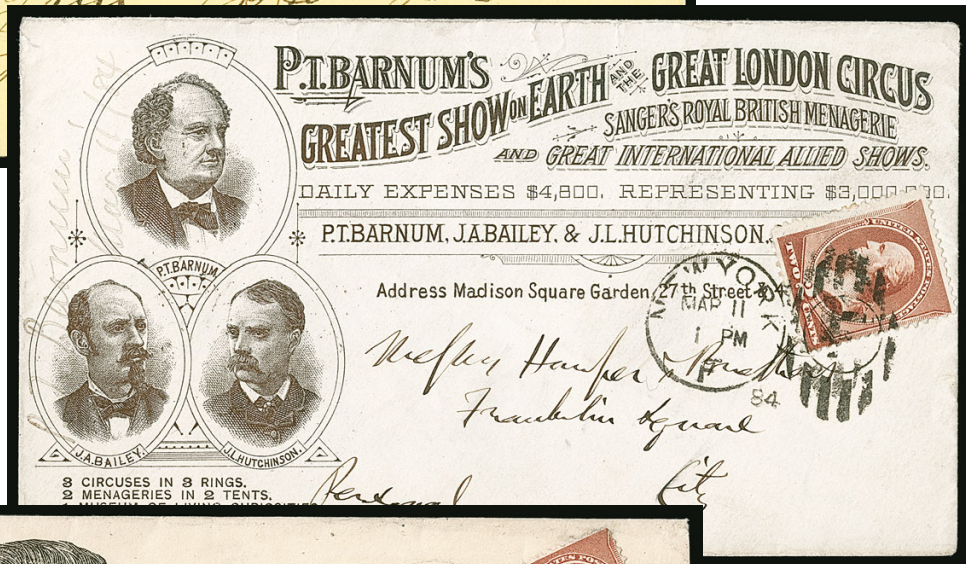 P.T. BARNUM'S
GREATEST SHOW ON EARTH AND THE GREAT LONDON CIRCUS
SANGER'S ROYAL BRITISH MENAGERIE
AND GREAT INTERNATIONAL ALLIED SHOWS.
DAILY EXPENSES $4,800. REPRESENTING $3,000,000.
P.T. BARNUM, J.A. BAILEY, & J.L. HUTCHINSON,
P.T. BARNUM.
Address Madison Square Garden, 27th Street & 4
NEW YORK
MAR 11
1 PM
84
UNITED STATES POSTAGE
TWO CENTS
Messrs Harper & Brothers
Franklin Square
City
Personal
J.A. BAILEY.
J.L. HUTCHINSON.
3 CIRCUSES IN 3 RINGS.
2 MENAGERIES IN 2 TENTS.
1 MUSEUM OF LIVING CURIOSITIES